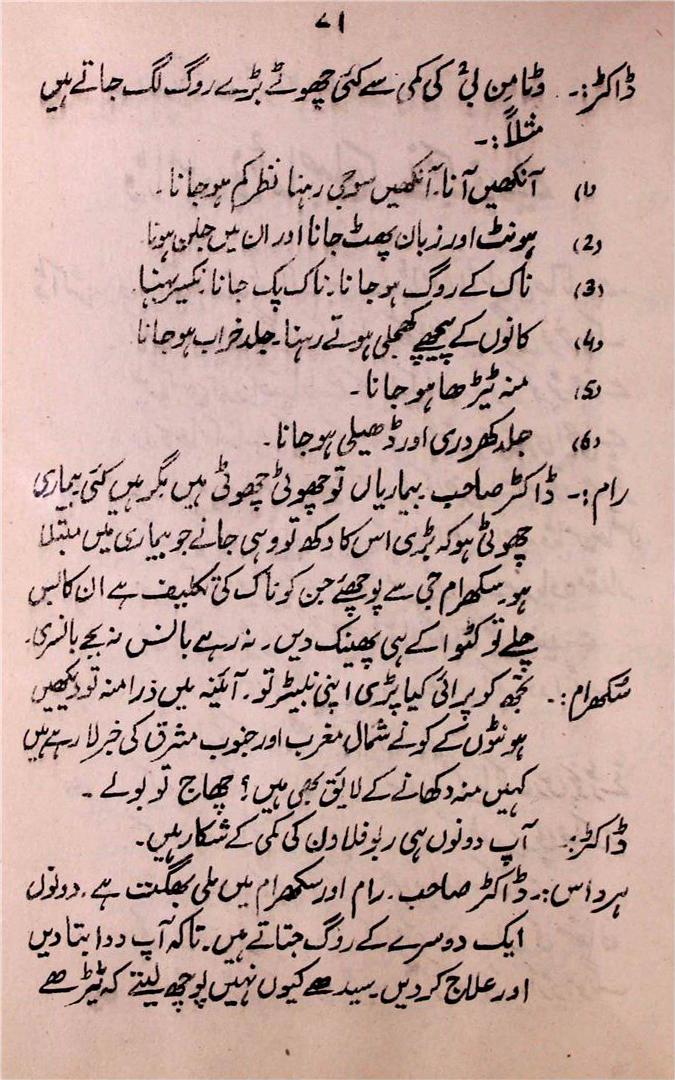 ۷۱
ڈاکٹر:۔ وٹامن بی۲ کی کمی سے کئی چھوٹے بڑے روگ لگ جاتے ہیں
مثلاً:۔
(1) آنکھیں آنا۔ آنکھیں سوجی رہنا نظر کم ہو جانا۔
(2) ہونٹ اور زبان پھٹ جانا اور ان میں جلن ہونا۔
(3) ناک کے روگ ہو جانا۔ ناک پک جانا۔ نکسیر بہنا۔
(4) کانوں کے پیچھے کھجلی ہوتے رہنا۔ جلد خراب ہو جانا
(5) منہ ٹیڑھا ہو جانا۔
(6) جلد کھردری اور ڈھیلی ہو جانا۔
رام:۔ ڈاکٹر صاحب۔ بیماریاں تو چھوٹی چھوٹی ہیں مگر ہیں کئی بیماری
چھوٹی ہو کہ بڑی اس کا دکھ تو وہی جانے جو بیماری میں مبتلا
ہو۔ سکھرام جی سے پوچھئے جن کو ناک کی تکلیف ہے ان کا بس
چلے تو کٹوا کے ہی پھینک دیں۔ نہ رہے بانس نہ بجے بانسری۔
سکھرام:۔ تجھ کو پرائی کیا پڑی اپنی نبیڑ تو۔ آئینہ میں ذرا منہ تو دیکھیں
ہونٹوں کے کونے شمال مغرب اور جنوب مشرق کی خبر لا رہے ہیں
کہیں منہ دکھانے کے لایق بھی ہیں؟ چھاج تو بولے۔
ڈاکٹر:۔ آپ دونوں ہی ربوفلاون کی کمی کے شکار ہیں۔
ہرداس:۔ ڈاکٹر صاحب۔ رام اور سکھرام میں ملی بھگت ہے۔ دونوں
ایک دوسرے کے روگ جتاتے ہیں۔ تاکہ آپ دوا بتا دیں
اور علاج کر دیں۔ سیدھے کیوں نہیں پوچھ لیتے کہ ٹیڑھے